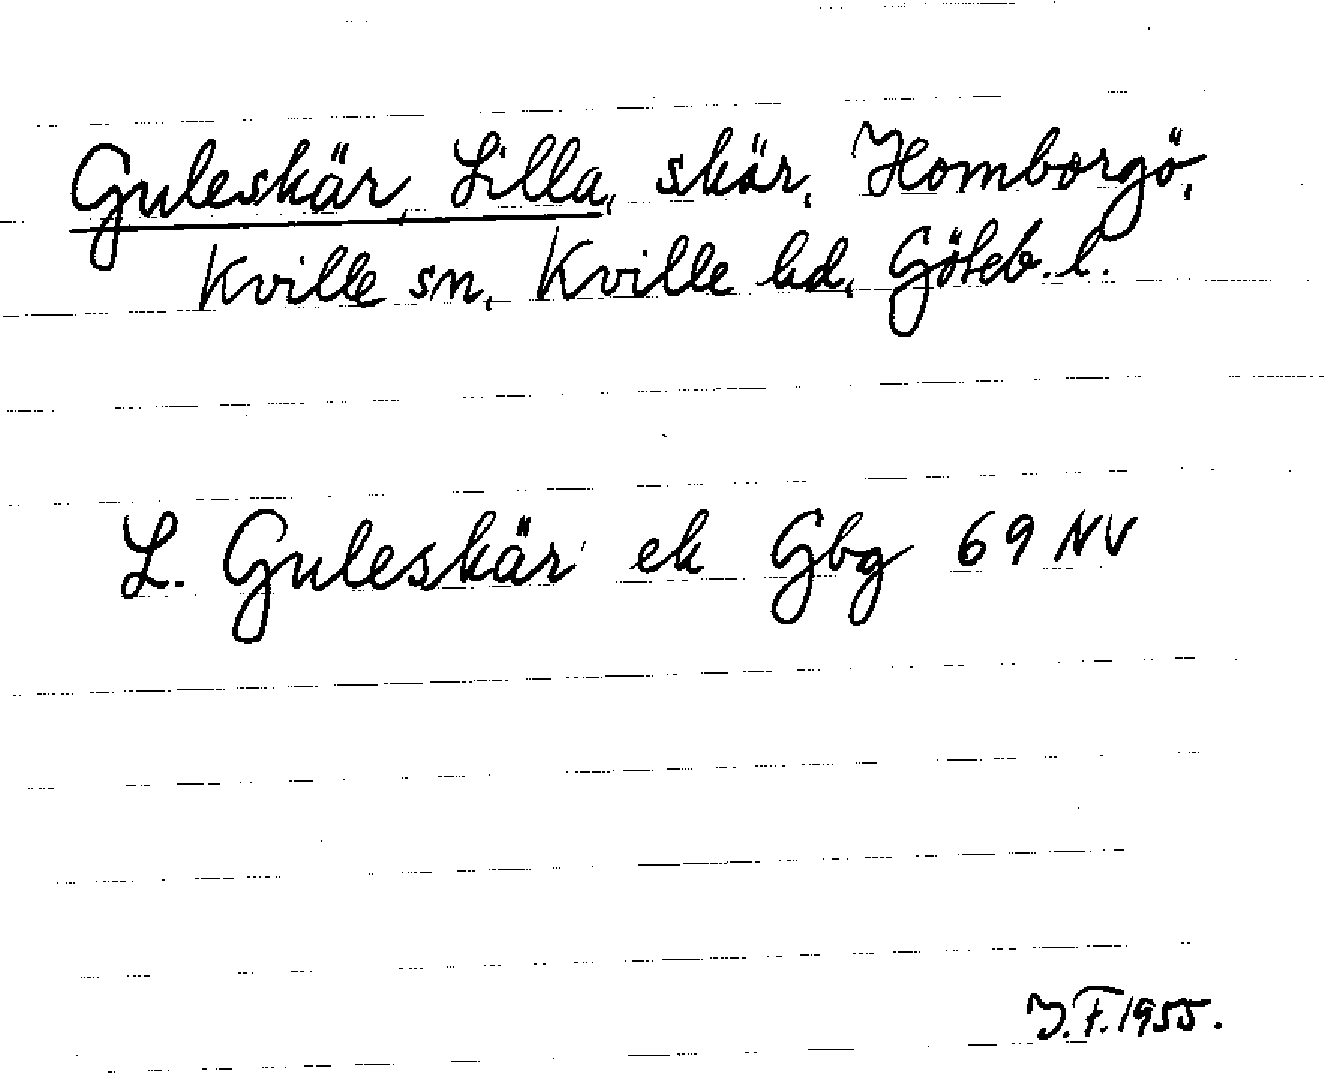 Guleskär, Lilla, skär, Homborgö,
Kville sn, Kville hd, Göteb. l.
L. Guleskär ek Gbg 69 NV
J.F. 1955.